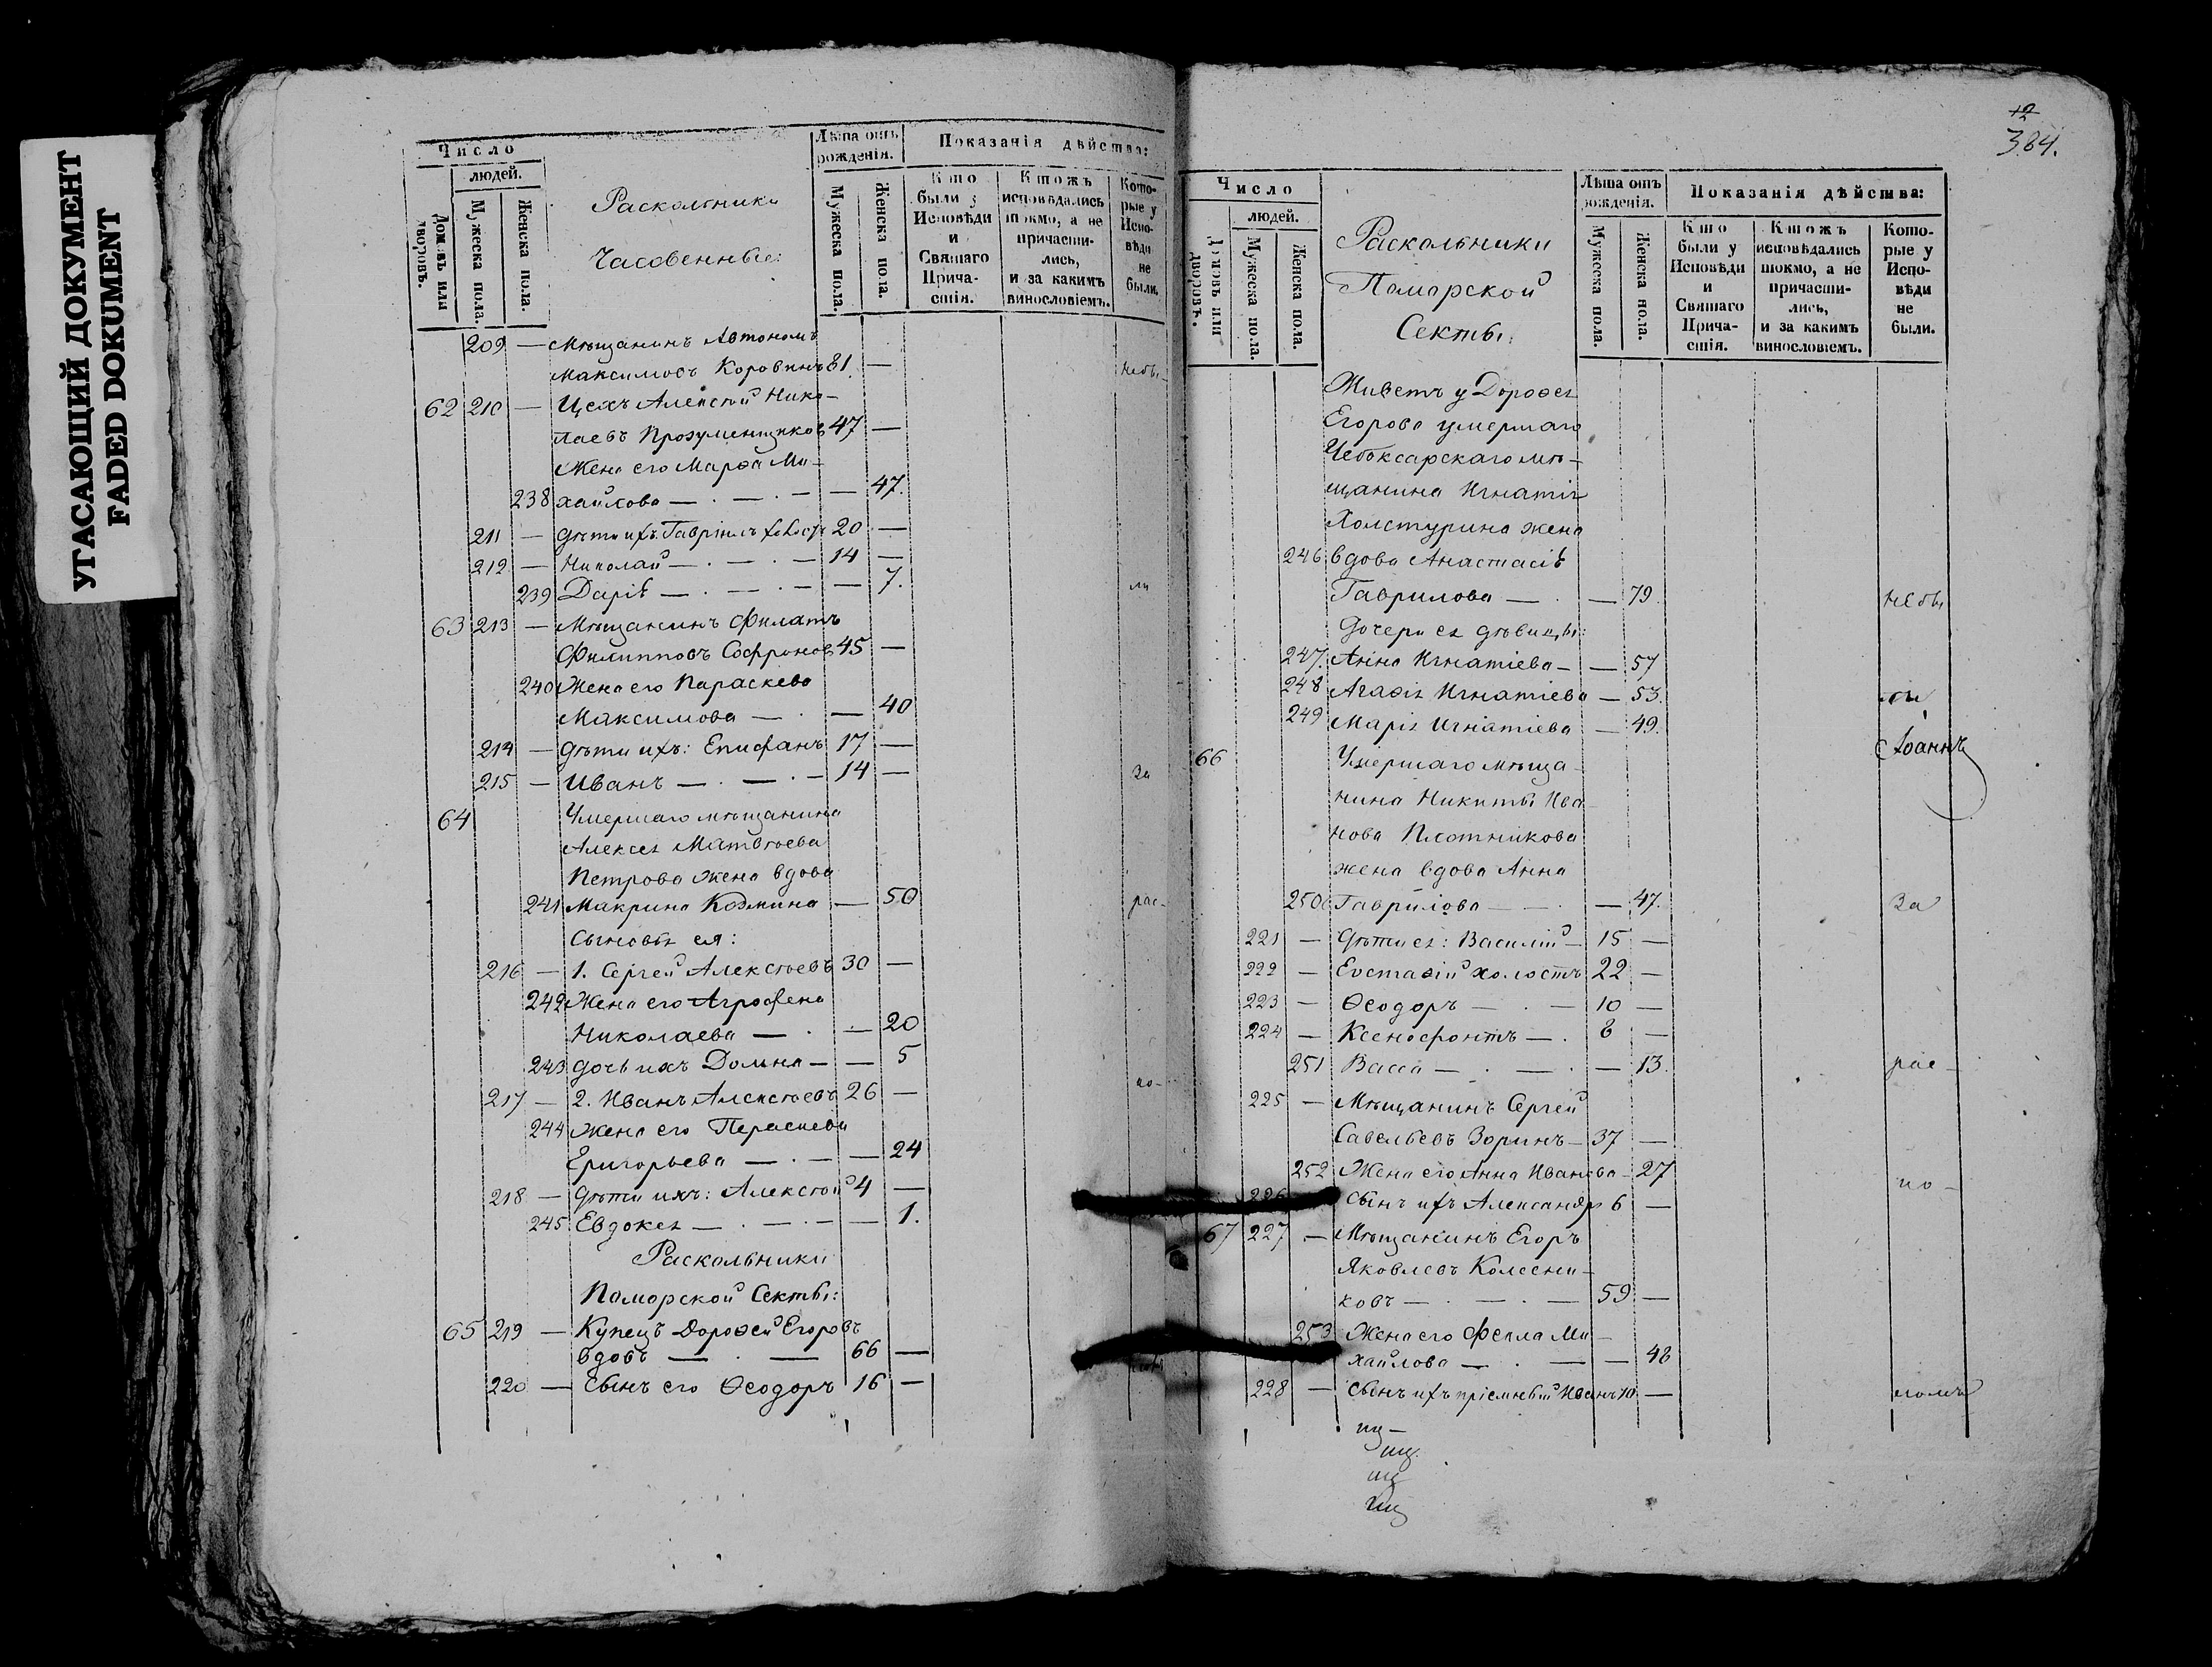 УГАСАЮЩИЙ ДОКУМЕНТ
FADED DOKUMENT
Число
людей.
Домовъ или дворовъ.
Мужеска пола.
Женска пола.
Раскольники
Часовенные:
Лѣта отъ рожденія.
Мужеска пола.
Женска пола.
Показанія дѣйства:
Кто были у Исповѣди и Святаго Причастія.
Ктожъ исповѣдались токмо, а не причастились, и за какимъ винословіемъ.
Которые у Исповѣди не были.
209 — Мѣщанинъ Автономъ
Максимовъ Коровинъ 81 — небы-
62 210 — Цехъ Алексѣй Нико-
лаевъ Прозументщиковъ 47 —
Жена его Марѳа Ми-
238 хайлова — . — . — — 47.
211 — дѣти ихъ: Гавріилъ холостъ 20 —
212 — Николай — . — . — 14 —
239 Дарія — . — . — — 7. ли
63 213 — Мѣщанинъ Филатъ
Филипповъ Софроновъ 45 —
240 Жена его Параскева
Максимова — . — 40
214 — дѣти ихъ: Епифанъ 17 —
215 — Иванъ — . — . — 14 — за
64 Умершаго мѣщанина
Алексея Матвѣева
Петрова жена вдова
241 Макрина Козмина — 50 рас-
Сыновья ея:
216 — 1. Сергей Алексѣевъ 30 —
242 Жена его Агрофена
Николаева — . — 20
243 дочь ихъ Домна — — 5
217 — 2. Иванъ Алексѣевъ 26 — ко-
244 Жена его Пераскева
Григорьева — . — — 24
218 — дѣти ихъ: Алексѣй 4 —
245 Евдокея — . — . — — 1.
Раскольники
Поморской Секты:
65 219 — Купецъ Дороѳей Егоровъ
вдовъ — . — 66 —
220 — Сынъ его Ѳеодоръ 16 —
384.
Число
людей.
Домовъ или дворовъ.
Мужеска пола.
Женска пола.
Раскольники
Поморской
Секты:
Лѣта отъ рожденія.
Мужеска пола.
Женска пола.
Показанія дѣйства:
Кто были у Исповѣди и Святаго Причастія.
Ктожъ исповѣдались токмо, а не причастились, и за какимъ винословіемъ.
Которые у Исповѣди не были.
Живетъ у Дороѳея
Егорова умершаго
Чебоксарскаго мѣ-
щанина Игнатія
Холстурина жена
246 вдова Анастасія
Гаврилова — . — 79. небы
Дочери ея дѣвицы:
247. Анна Игнатіева — — 57
248 Агаѳія Игнатіева — 53. ли
249 Марія Игнатіева — 49.
Іоаннъ
66 Умершаго мѣща-
нина Никиты Ива-
нова Плотникова
жена вдова Анна
250 Гаврилова — . — 47. за
221 — Дѣти ея: Василій — 15 —
222 — Евстаѳій холостъ 22 —
223 — Ѳеодоръ — . — 10 —
224 — Ксенофонтъ — . 8 —
251 Васса — . — . — 13. рас-
225 — Мѣщанинъ Сергей
Савельевъ Зоринъ — 37 —
252 Жена его Анна Иванова — 27
226 Сынъ ихъ Александръ 6 — ко-
67 227 — Мѣщанинъ Егоръ
Яковлевъ Колесни-
ковъ — . — . — 59 —
253 Жена его Фекла Ми-
хайлова — . — — 48
228 — Сынъ ихъ пріемный Иванъ 10 — ломъ